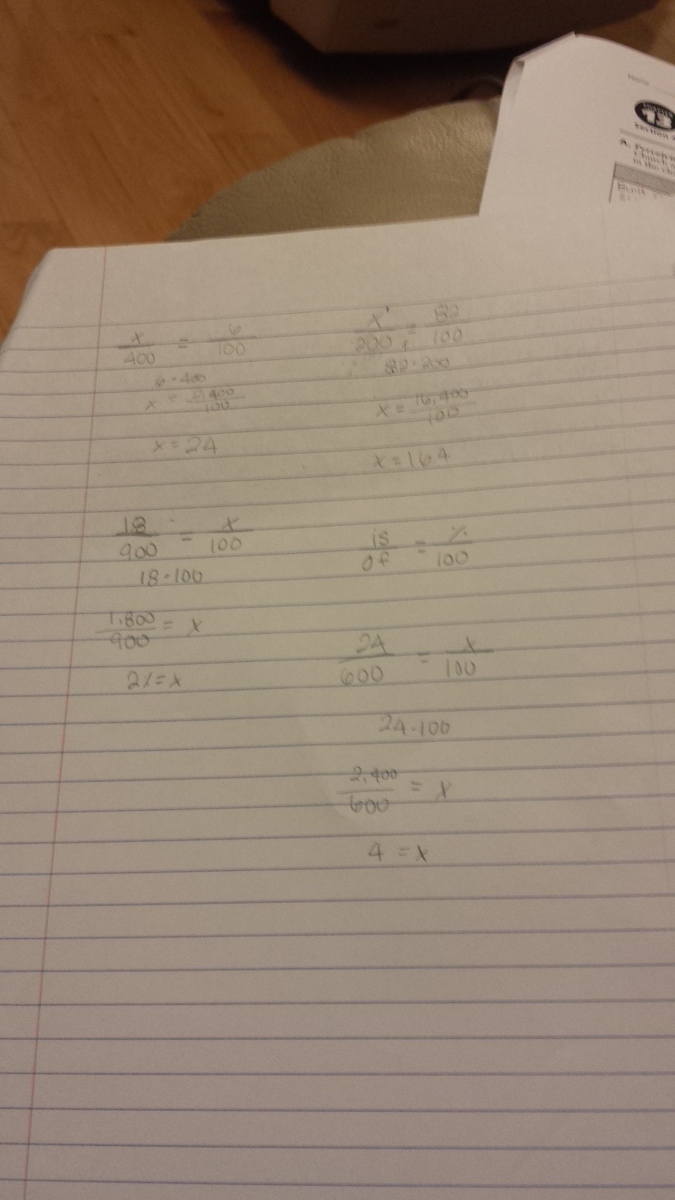 x/400 = 6/100
6·400
x = 2,400/100
x = 24
x/200 = 82/100
82·200
x = 16,400/100
x = 164
18/900 = x/100
18·100
1,800/900 = x
2% = x
is/of = %/100
24/600 = x/100
24·100
2,400/600 = x
4 = x
Name
13
A.
in the